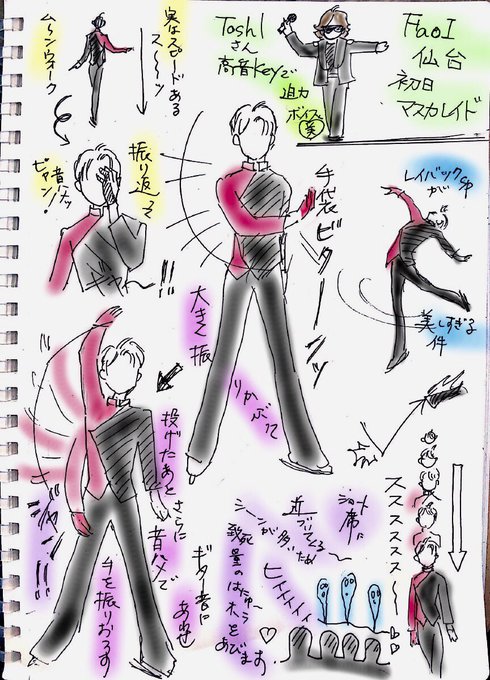 FaoI
仙台
初日
マスカレイド
Toshl
さん
高音keyで
迫力
ボイス
美
実はスピードある
ス〜〜ッ
ムーンウォーク
振り返って
ピアノ音ハメ
ギャー!!
手袋ビターーッ
大きく振
りかぶって
レイバック中
が
美しすぎる
件
投げたあと
さらに
音ハメで
手を振りおろす
ギター音に
あわせ
ショート
席に
近づいてくる〜
シーンが多いため
致死量のはたゅー
オーラを
あびます。
ヒイィィィィ
スススススス〜